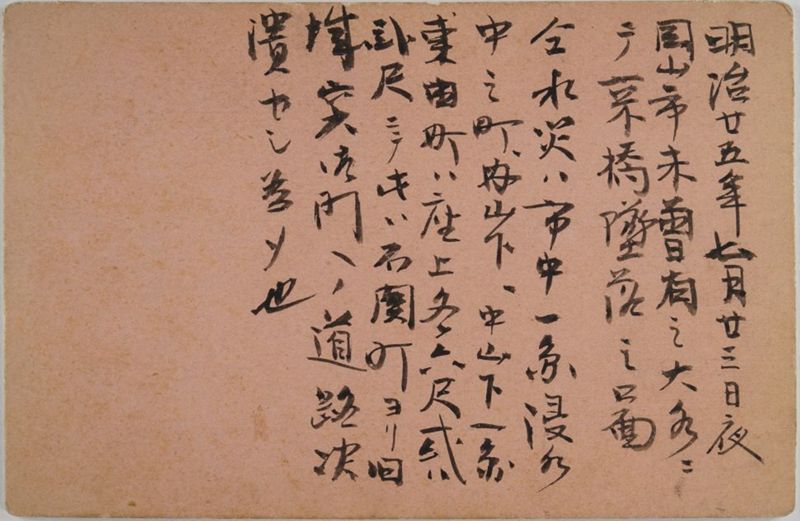 明治廿五年七月廿三日夜
岡山市未曽有之大水ニ
テ京橋墜落之図
仝水災ハ市中一系浸水
中之町、内山下、中山下一系
東田町ハ座上各六尺或ハ
卦尺ニテ此ハ石関町ヨリ旧
城実門ヘノ道路決
潰セシ為ソ也